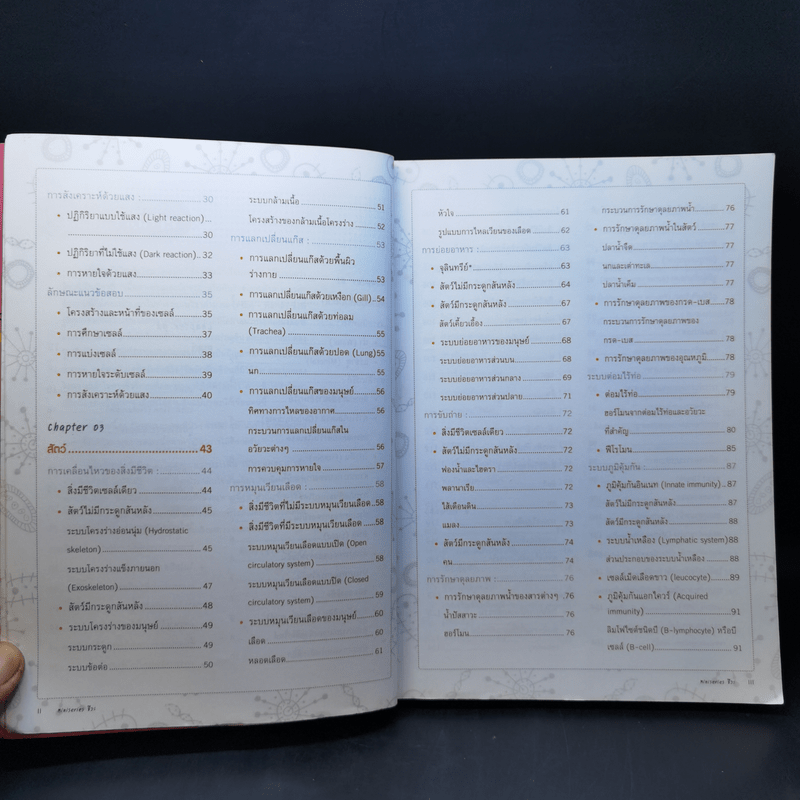 การสังเคราะห์ด้วยแสง : 30
• ปฏิกิริยาแบบใช้แสง (Light reaction)....
30
• ปฏิกิริยาที่ไม่ใช้แสง (Dark reaction)..32
• การหายใจด้วยแสง 33
ลักษณะแนวข้อสอบ 35
• โครงสร้างและหน้าที่ของเซลล์ 35
• การศึกษาเซลล์ 37
• การแบ่งเซลล์ 38
• การหายใจระดับเซลล์ 39
• การสังเคราะห์ด้วยแสง 40
Chapter 03
สัตว์ 43
การเคลื่อนไหวของสิ่งมีชีวิต : 44
• สิ่งมีชีวิตเซลล์เดียว 44
• สัตว์ไม่มีกระดูกสันหลัง 45
ระบบโครงร่างอ่อนนุ่ม (Hydrostatic
skeleton) 45
ระบบโครงร่างแข็งภายนอก
(Exoskeleton) 47
• สัตว์มีกระดูกสันหลัง 48
• ระบบโครงร่างของมนุษย์ 49
ระบบกระดูก 49
ระบบข้อต่อ 50
ระบบกล้ามเนื้อ 51
โครงสร้างของกล้ามเนื้อโครงร่าง 52
การแลกเปลี่ยนแก๊ส : 53
• การแลกเปลี่ยนแก๊สด้วยพื้นผิว
ร่างกาย 53
• การแลกเปลี่ยนแก๊สด้วยเหงือก (Gill)..54
• การแลกเปลี่ยนแก๊สด้วยท่อลม
(Trachea) 55
• การแลกเปลี่ยนแก๊สด้วยปอด (Lung)55
นก 55
• การแลกเปลี่ยนแก๊สของมนุษย์ 56
ทิศทางการไหลของอากาศ 56
กระบวนการแลกเปลี่ยนแก๊สใน
อวัยวะต่างๆ 56
การควบคุมการหายใจ 57
การหมุนเวียนเลือด : 58
• สิ่งมีชีวิตที่ไม่มีระบบหมุนเวียนเลือด..58
• สิ่งมีชีวิตที่มีระบบหมุนเวียนเลือด 58
ระบบหมุนเวียนเลือดแบบเปิด (Open
circulatory system) 58
ระบบหมุนเวียนเลือดแบบปิด (Closed
circulatory system) 59
• ระบบหมุนเวียนเลือดของมนุษย์ 60
เลือด 60
หลอดเลือด 61
II
หัวใจ 61
รูปแบบการไหลเวียนของเลือด 62
การย่อยอาหาร : 63
• จุลินทรีย์* 63
• สัตว์ไม่มีกระดูกสันหลัง 64
• สัตว์มีกระดูกสันหลัง 67
สัตว์เคี้ยวเอื้อง 67
• ระบบย่อยอาหารของมนุษย์ 68
ระบบย่อยอาหารส่วนบน 68
ระบบย่อยอาหารส่วนกลาง 69
ระบบย่อยอาหารส่วนปลาย 71
การขับถ่าย : 72
• สิ่งมีชีวิตเซลล์เดียว 72
• สัตว์ไม่มีกระดูกสันหลัง 72
ฟองน้ำและไฮดรา 72
พลานาเรีย 72
ไส้เดือนดิน 73
แมลง 73
• สัตว์มีกระดูกสันหลัง 74
คน 74
การรักษาดุลยภาพ : 76
• การรักษาดุลยภาพน้ำของสารต่างๆ .76
น้ำปัสสาวะ 76
ฮอร์โมน 76
กระบวนการรักษาดุลยภาพน้ำ 76
• การรักษาดุลยภาพน้ำในสัตว์ 77
ปลาน้ำจืด 77
นกและเต่าทะเล 77
ปลาน้ำเค็ม 77
• การรักษาดุลยภาพของกรด-เบส 78
กระบวนการรักษาดุลยภาพของ
กรด-เบส 78
• การรักษาดุลยภาพของอุณหภูมิ 78
ระบบต่อมไร้ท่อ 79
• ต่อมไร้ท่อ 79
ฮอร์โมนจากต่อมไร้ท่อและอวัยวะ
ที่สำคัญ 80
• ฟีโรโมน 85
ระบบภูมิคุ้มกัน : 87
• ภูมิคุ้มกันอินเนท (Innate immunity).87
สัตว์ไม่มีกระดูกสันหลัง 87
สัตว์มีกระดูกสันหลัง 88
• ระบบน้ำเหลือง (Lymphatic system)88
ส่วนประกอบของระบบน้ำเหลือง 88
• เซลล์เม็ดเลือดขาว (leucocyte) 89
• ภูมิคุ้มกันแอกไควร์ (Acquired
immunity) 91
ลิมโฟไซต์ชนิดบี (B-lymphocyte) หรือบี
เซลล์ (B-cell) 91
III